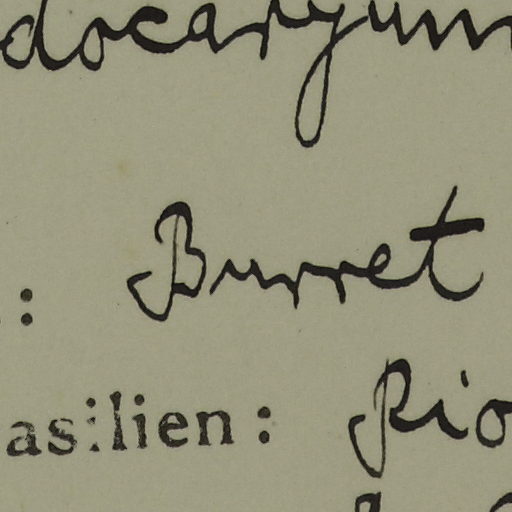 docaryum
: Burret
asilien: Rio